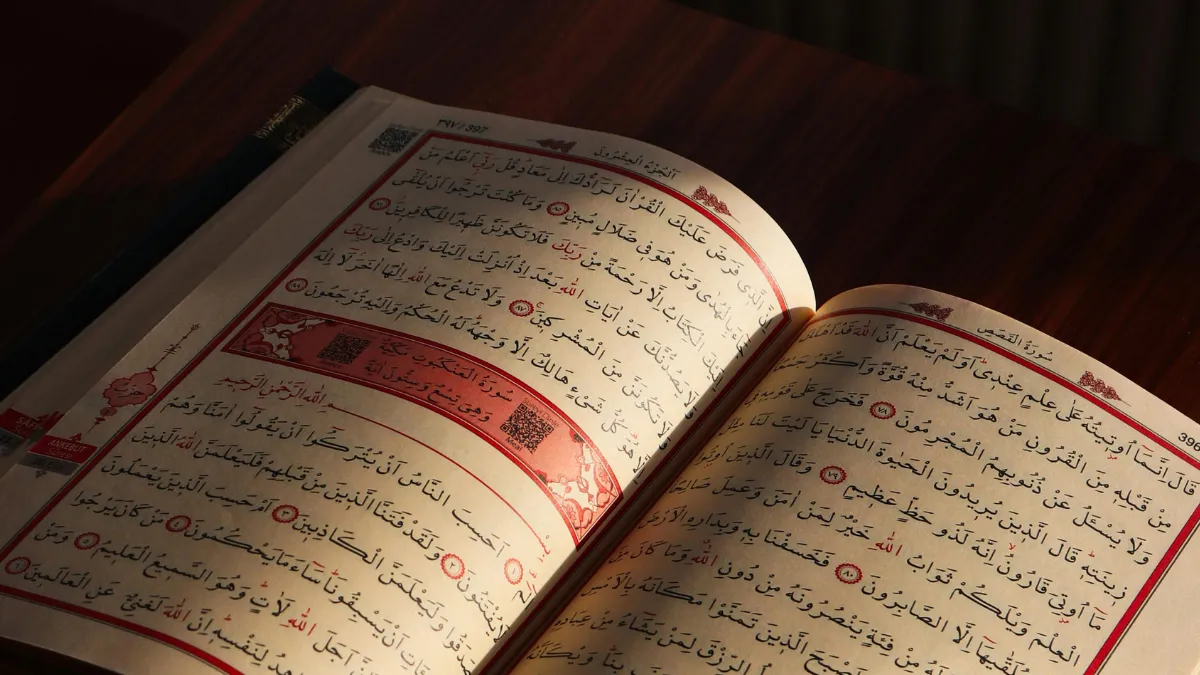 سُورَةُ الْقَصَصِ
39
قَالَ اِنَّمَٓا اُو۫تِيتُهُ عَلٰى عِلْمٍ عِنْدِىۜ اَوَلَمْ يَعْلَمْ اَنَّ اللّٰهَ قَدْ اَهْلَكَ
مِنْ قَبْلِهِ مِنَ الْقُرُونِ مَنْ هُوَ اَشَدُّ مِنْهُ قُوَّةً وَاَكْثَرُ جَمْعًا
وَلَا يُسْـَٔلُ عَنْ ذُنُوبِهِمُ الْمُجْرِمُونَ ٧٨ فَخَرَجَ عَلٰى قَوْمِهِ فِى
زِينَتِهِ قَالَ الَّذِينَ يُرِيدُونَ الْحَيٰوةَ الدُّنْيَا يَا لَيْتَ لَنَا مِثْلَ
مَٓا اُو۫تِىَ قَارُونُ اِنَّهُ لَذُو حَظٍّ عَظِيمٍ ٧٩ وَقَالَ الَّذِينَ اُو۫تُوا
الْعِلْمَ وَيْلَكُمْ ثَوَابُ اللّٰهِ خَيْرٌ لِمَنْ اٰمَنَ وَعَمِلَ صَالِحًا
يُلَقّٰيهَٓا اِلَّا الصَّابِرُونَ ٨٠ فَخَسَفْنَا بِهِ وَبِدَارِهِ الْاَرْضَ
لَهُ مِنْ فِئَةٍ يَنْصُرُونَهُ مِنْ دُونِ اللّٰهِ وَمَا كَانَ مِنَ
وَاَصْبَحَ الَّذِينَ تَمَنَّوْا مَكَانَهُ بِالْاَمْسِ
الرِّزْقَ لِمَنْ يَشَٓاءُ مِنْ عِبَادِهِ
بِنَا وَيْكَاَنَّ
اَلْجُزْءُ الْعِشْرُونَ
٣٩٧ / 397
اِنَّ الَّذِى فَرَضَ عَلَيْكَ الْقُرْاٰنَ لَرَٓادُّكَ اِلٰى مَعَادٍ قُلْ رَبِّٓى اَعْلَمُ مَنْ
جَٓاءَ بِالْهُدٰى وَمَنْ هُوَ فِى ضَلَالٍ مُبِينٍ ٨٥ وَمَا كُنْتَ تَرْجُٓوا اَنْ يُلْقٰٓى
اِلَيْكَ الْكِتَابُ اِلَّا رَحْمَةً مِنْ رَبِّكَ فَلَا تَكُونَنَّ ظَهِيرًا لِلْكَافِرِينَ ٨٦
وَلَا يَصُدُّنَّكَ عَنْ اٰيَاتِ اللّٰهِ بَعْدَ اِذْ اُنْزِلَتْ اِلَيْكَ وَادْعُ اِلٰى رَبِّكَ
وَلَا تَكُونَنَّ مِنَ الْمُشْرِكِينَ ٨٧ وَلَا تَدْعُ مَعَ اللّٰهِ اِلٰهًا اٰخَرَ لَٓا اِلٰهَ
اِلَّا هُوَ كُلُّ شَىْءٍ هَالِكٌ اِلَّا وَجْهَهُ لَهُ الْحُكْمُ وَاِلَيْهِ تُرْجَعُونَ ٨٨
سُورَةُ الْعَنْكَبُوتِ مَكِّيَّةٌ
وَهِىَ تِسْعٌ وَسِتُّونَ اٰيَةً
بِسْمِ اللّٰهِ الرَّحْمٰنِ الرَّحِيمِ
الٓمٓ ١ اَحَسِبَ النَّاسُ اَنْ يُتْرَكُٓوا اَنْ يَقُولُٓوا اٰمَنَّا وَهُمْ
لَا يُفْتَنُونَ ٢ وَلَقَدْ فَتَنَّا الَّذِينَ مِنْ قَبْلِهِمْ فَلَيَعْلَمَنَّ اللّٰهُ الَّذِينَ
صَدَقُوا وَلَيَعْلَمَنَّ الْكَاذِبِينَ ٣ اَمْ حَسِبَ الَّذِينَ يَعْمَلُونَ
السَّيِّـَٔاتِ اَنْ يَسْبِقُونَا سَٓاءَ مَا يَحْكُمُونَ ٤ مَنْ كَانَ يَرْجُوا
اَجَلَ اللّٰهِ لَاٰتٍ وَهُوَ السَّمِيعُ الْعَلِيمُ ٥ وَمَنْ
يُجَاهِدُ لِنَفْسِهِ اِنَّ اللّٰهَ لَغَنِىٌّ عَنِ الْعَالَمِينَ ٦
ANKEBUT